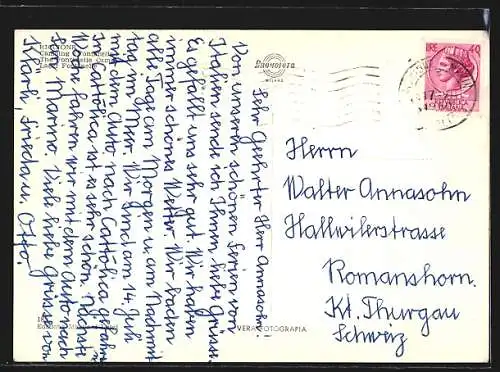 RICCIONE
Camping Fontanelle
Sehr Geehrter Herr Annasohn!
Von unseren schönen Ferien, von
Italien sende ich Ihnen liebe Grüsse.
Es gefällt uns sehr gut. Wir haben
immer schönes Wetter. Wir baden
alle Tage am Morgen u. am Nachmit
tag im Meer. Wir sind am 14. Juli
mit dem Auto nach Cattolica gefahren.
In Cattolica ist es sehr schön. Nächste
Woche fahren wir mit dem Auto nach
San Marino. Viele liebe Grüsse von
Karli, Frieda u. Otto.
MILANO
LIRE 40
Herrn
Walter Annasohn
Hallwilerstrasse
Romanshorn.
Kt. Thurgau
Schweiz
VERA FOTOGRAFIA